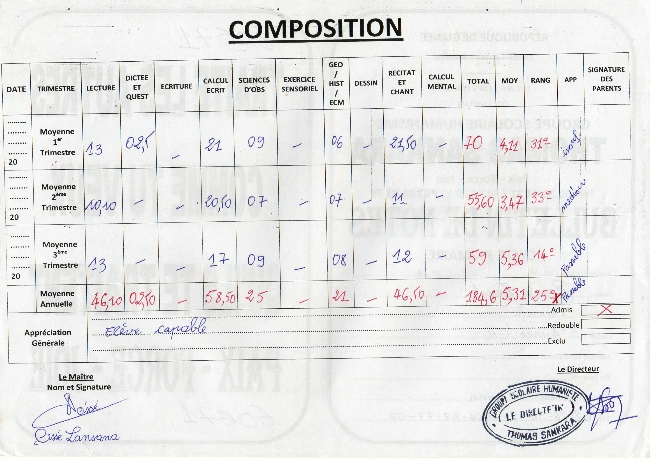 COMPOSITION
DATE TRIMESTRE LECTURE DICTEE ET QUEST ECRITURE CALCUL ECRIT SCIENCES D'OBS EXERCICE SENSORIEL GEO / HIST / ECM DESSIN RECITAT ET CHANT CALCUL MENTAL TOTAL MOY RANG APP SIGNATURE DES PARENTS
........ ........ ........ 20 Moyenne 1er Trimestre 13 02,5 - 21 09 - 06 - 21,50 - 70 4,11 31e
........ ........ ........ 20 Moyenne 2ème Trimestre 10,10 - - 20,50 07 - 07 - 11 - 55,60 3,47 33e médiocre
........ ........ ........ 20 Moyenne 3ème Trimestre 13 - - 17 09 - 08 - 12 - 59 5,36 14e Passable
Moyenne Annuelle 46,10 02,50 - 58,50 25 - 21 - 46,50 - 184,6 5,31 25e Passable
Appréciation Générale
Elève capable
Admis X
Redouble
Exclu
Le Maître
Nom et Signature
Cissé Lansana
Le Directeur
GROUPE SCOLAIRE HUMANISTE
LE DIRECTEUR
THOMAS SANKARA